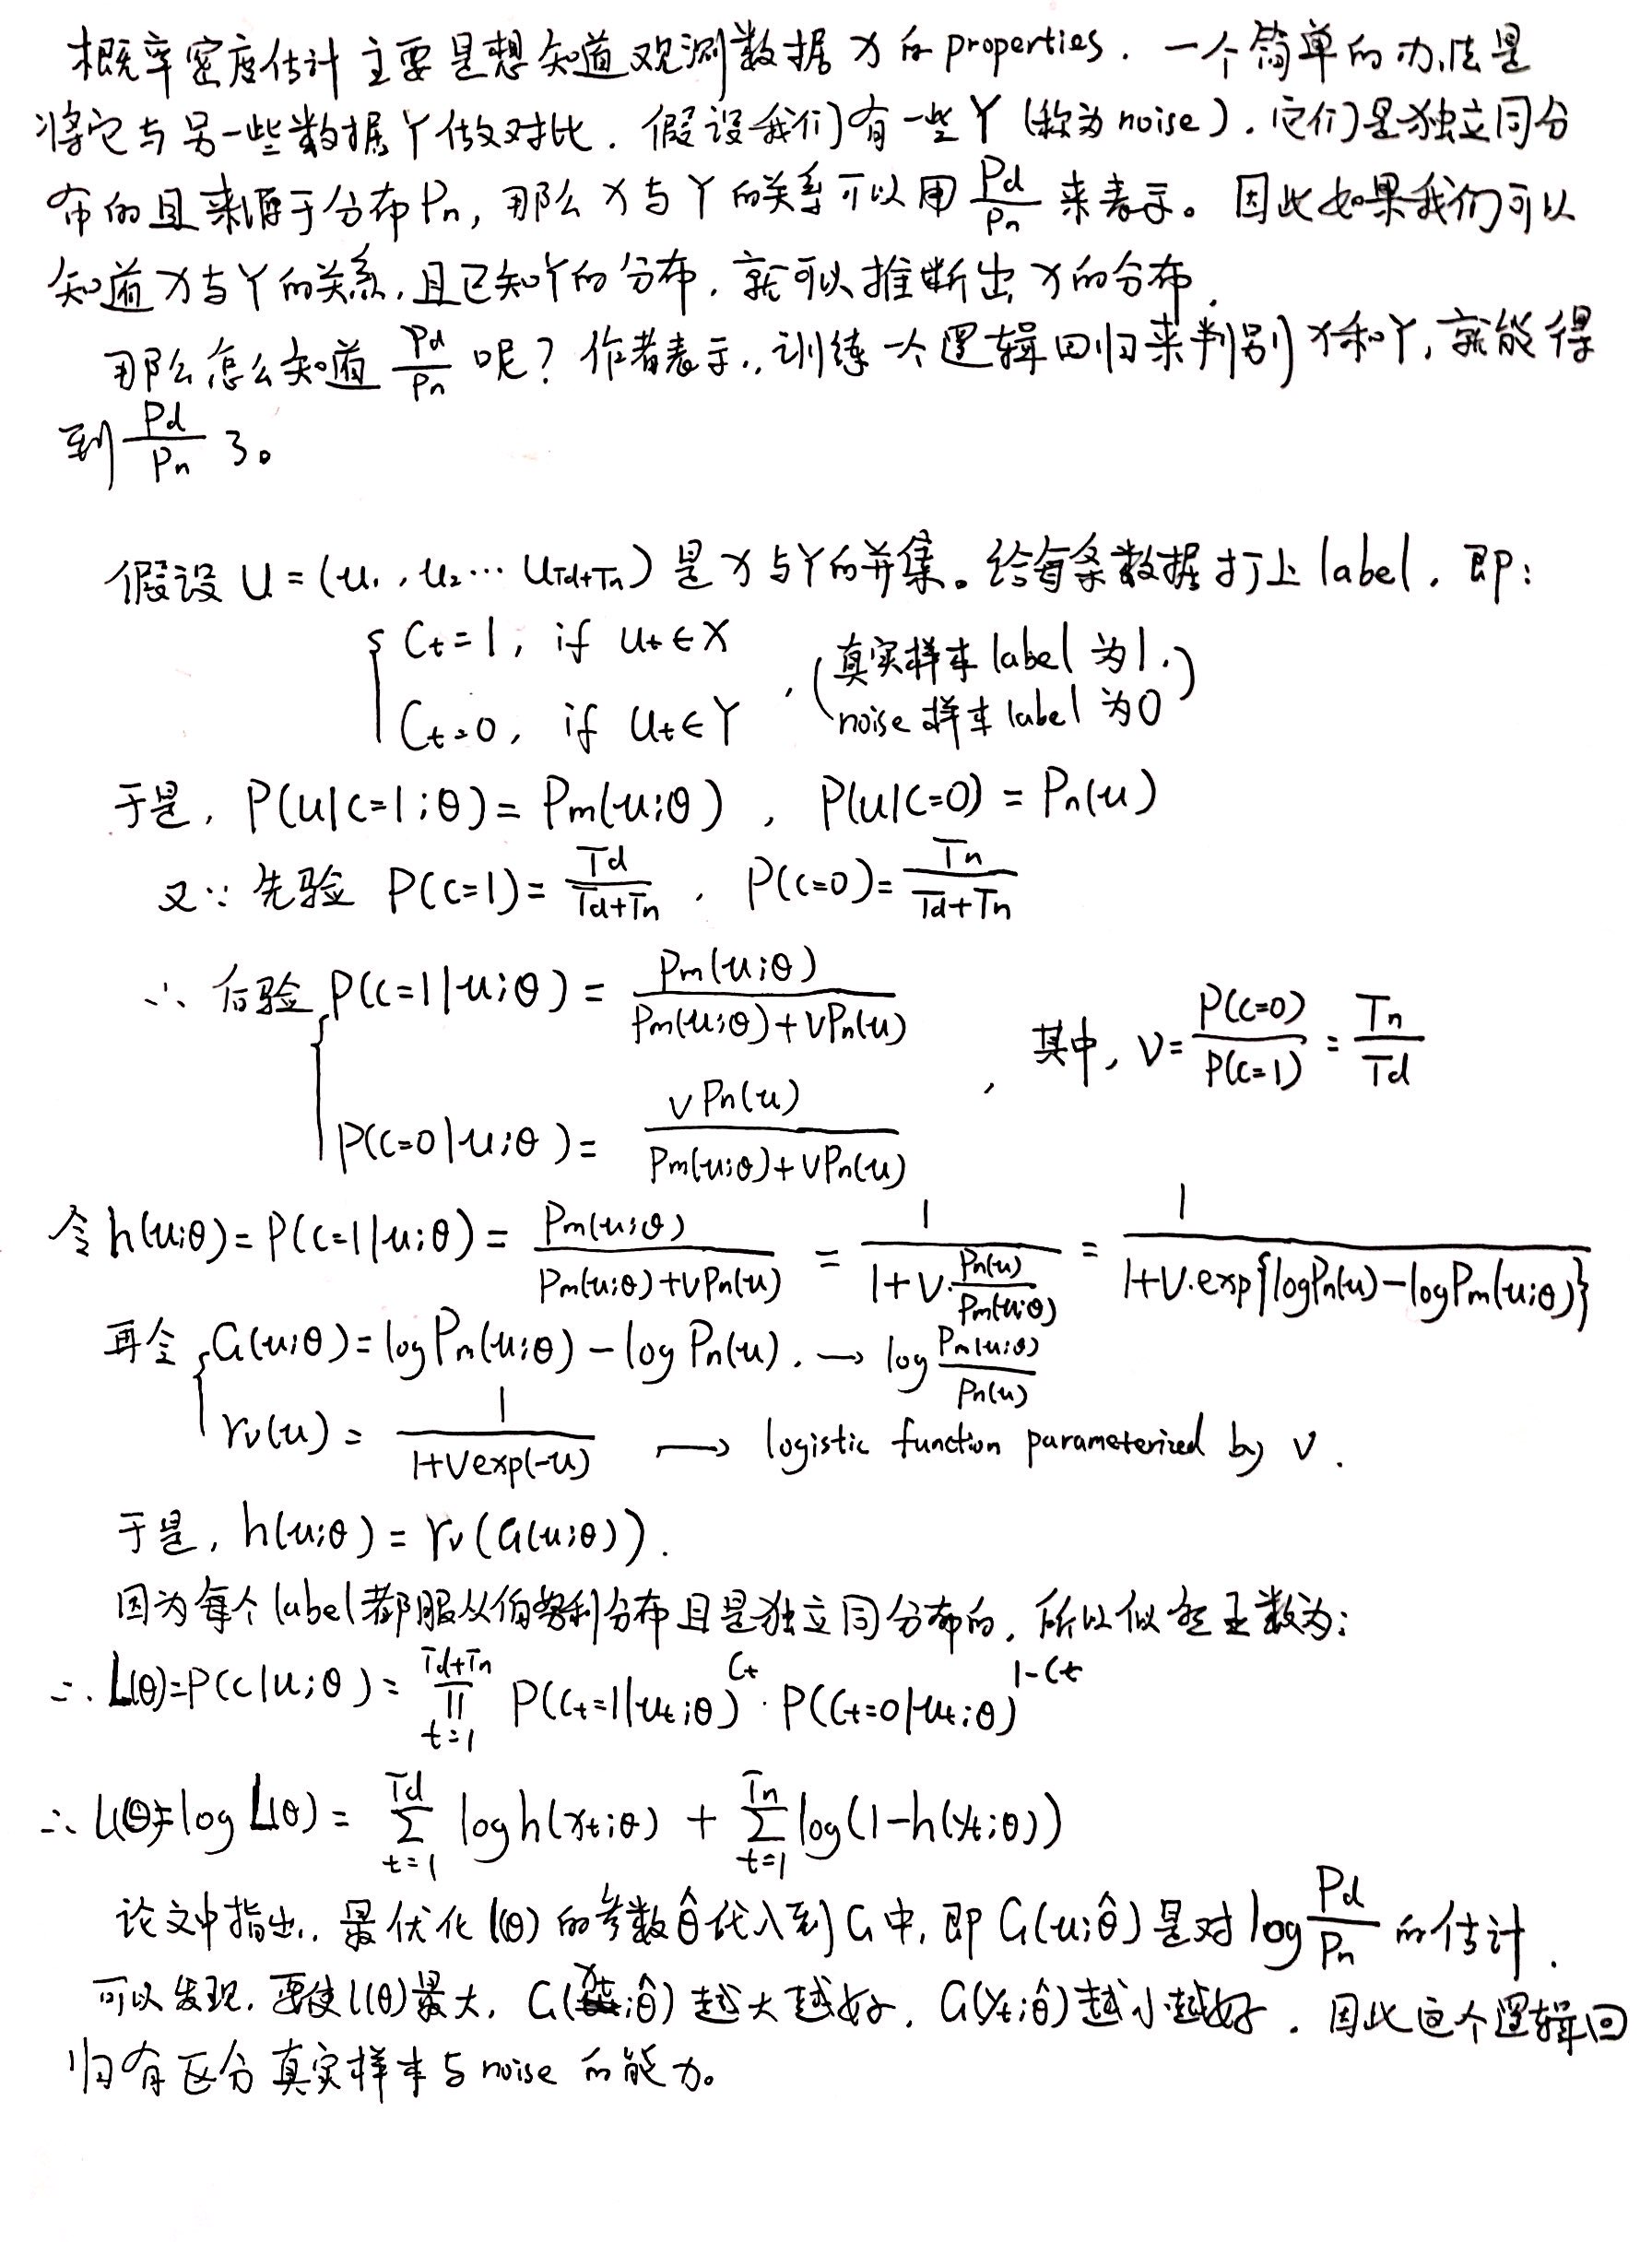 概率密度估计主要是想知道观测数据X的properties. 一个简单的办法是
将它与另一些数据Y做对比. 假设我们有一些Y(称为noise), 它们是独立同分
布的且来源于分布Pn, 那么X与Y的关系可以用 Pd/Pn 来表示。因此如果我们可以
知道X与Y的关系, 且已知Y的分布, 就可以推断出X的分布.
那么怎么知道 Pd/Pn 呢? 作者表示, 训练一个逻辑回归来判别X和Y, 就能得
到 Pd/Pn 了。
假设 U = (u₁, u₂ ⋯ u_{Td+Tn}) 是X与Y的并集。给每条数据打上label, 即:
{ Ct=1, if ut∈X
Ct=0, if ut∈Y , (真实样本label为1, noise样本label为0)
于是, P(u|C=1;θ) = Pm(u;θ) , P(u|C=0) = Pn(u)
又∵ 先验 P(C=1) = Td/(Td+Tn) , P(C=0) = Tn/(Td+Tn)
∴ 后验 { P(C=1|u;θ) = Pm(u;θ)/(Pm(u;θ)+νPn(u))
P(C=0|u;θ) = νPn(u)/(Pm(u;θ)+νPn(u)) , 其中, ν = P(C=0)/P(C=1) = Tn/Td
令 h(u;θ) = P(C=1|u;θ) = Pm(u;θ)/(Pm(u;θ)+νPn(u)) = 1/(1+ν·Pn(u)/Pm(u;θ)) = 1/(1+ν·exp{logPn(u)−logPm(u;θ)})
再令 { G(u;θ) = logPm(u;θ) − logPn(u). → log Pm(u;θ)/Pn(u)
rν(u) = 1/(1+νexp(−u)) → logistic function parameterized by ν.
于是, h(u;θ) = rν(G(u;θ)).
因为每个label都服从伯努利分布且是独立同分布的, 所以似然函数为:
∴ L(θ)=P(C|U;θ) = ∏_{t=1}^{Td+Tn} P(Ct=1|ut;θ)^{Ct} · P(Ct=0|ut;θ)^{1−Ct}
∴ l(θ)=log L(θ) = ∑_{t=1}^{Td} log h(xt;θ) + ∑_{t=1}^{Tn} log(1−h(yt;θ))
论文中指出, 最优化 l(θ) 的参数θ̂代入到G中, 即 G(u;θ̂) 是对 log Pd/Pn 的估计.
可以发现, 要使l(θ)最大, G(xt;θ̂) 越大越好, G(yt;θ̂)越小越好. 因此这个逻辑回
归有区分真实样本与noise的能力。